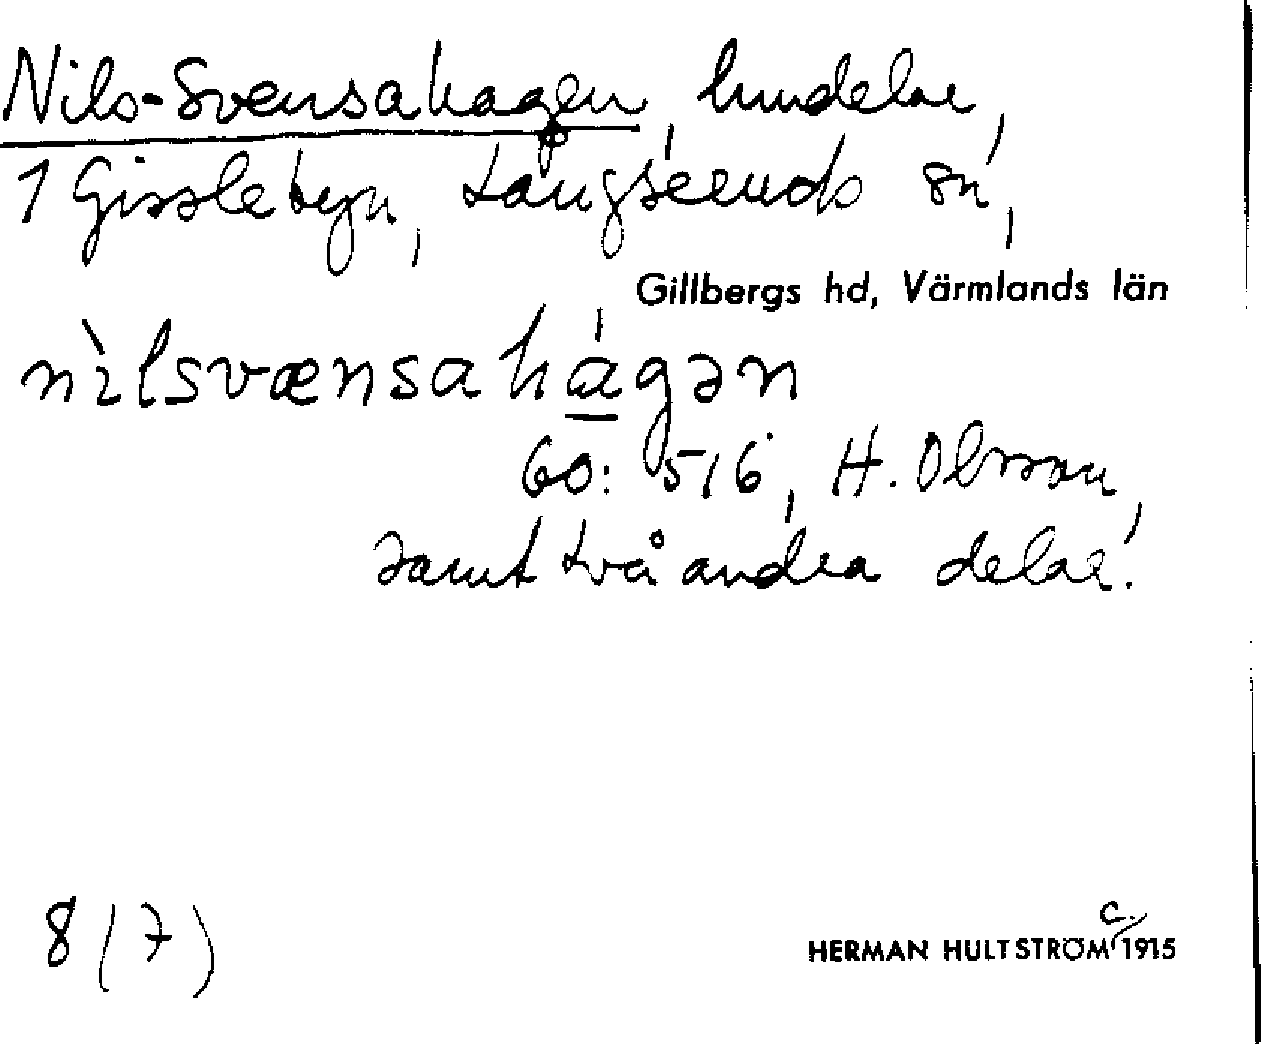 Nils-Svensahagen, lundelar,
1 Gisslebyn, Långseruds sn,
Gillbergs hd, Värmlands län
nìlsvænsahágən
60: 516, H. Olsson,
samt två andra delar!
8 (7)
c.
HERMAN HULTSTRÖM 1915